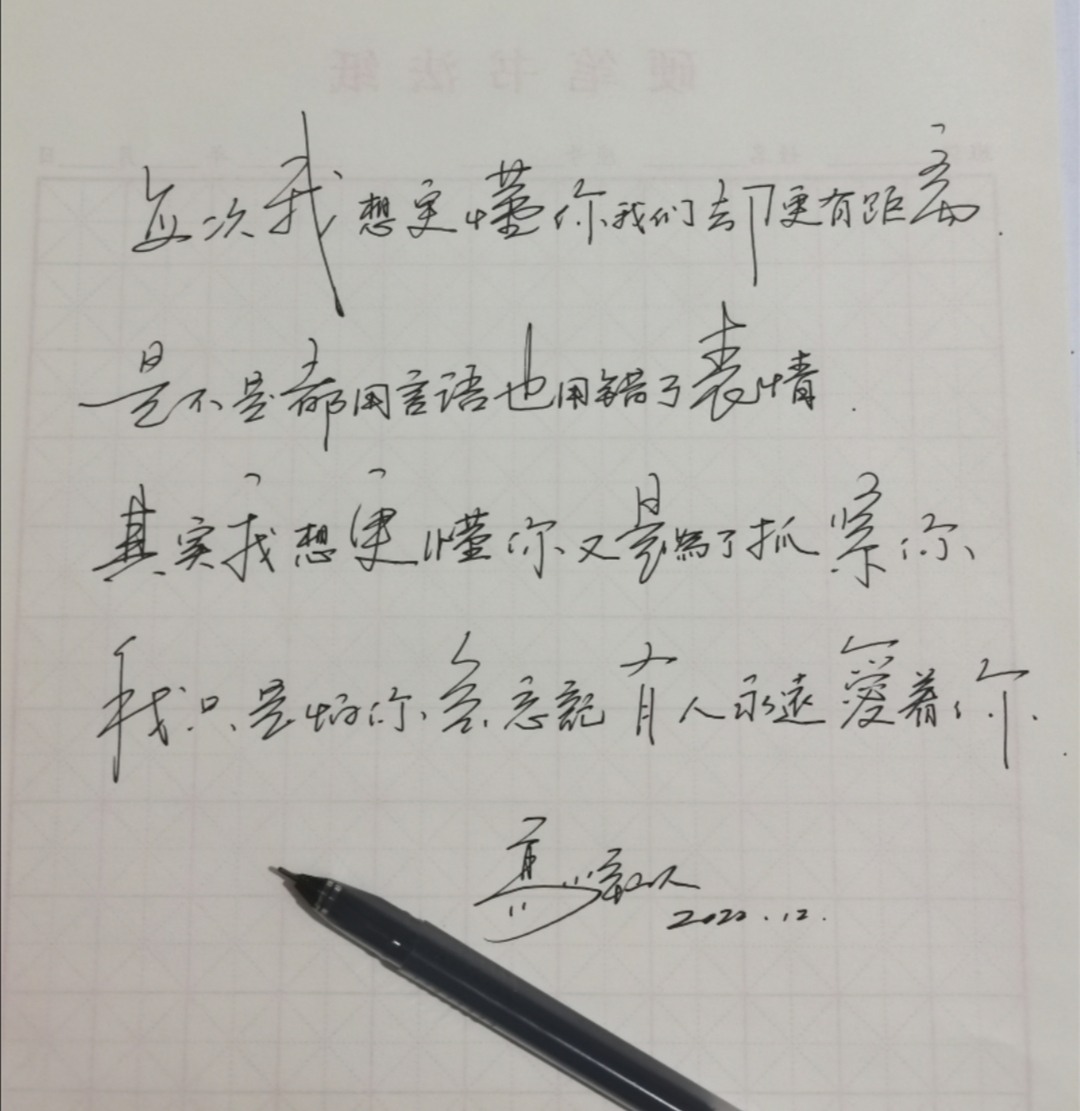 硬笔书法纸
年 月 日
每次我想更懂你我们却更有距离.
是不是都用言语也用错了表情.
其实我想更懂你又是為了抓紧你、
我只是怕你会忘記有人永遠愛着你、
2020.12.